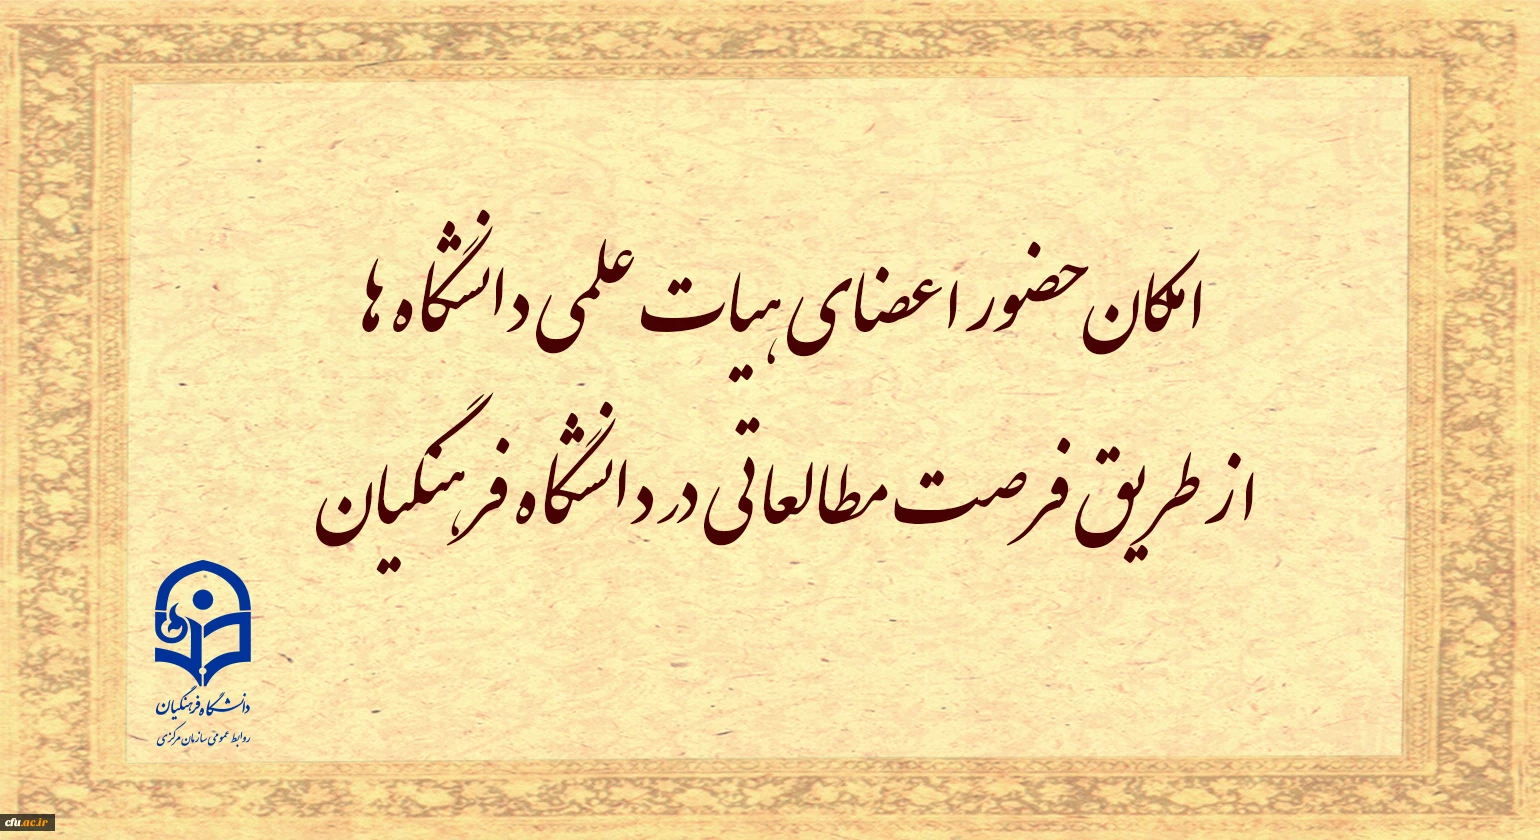 امکان حضور اعضای هیات علمی دانشگاه ها
از طریق فرصت مطالعاتی در دانشگاه فرهنگیان
دانشگاه فرهنگیان
روابط عمومی سازمان مرکزی
cfu.ac.ir